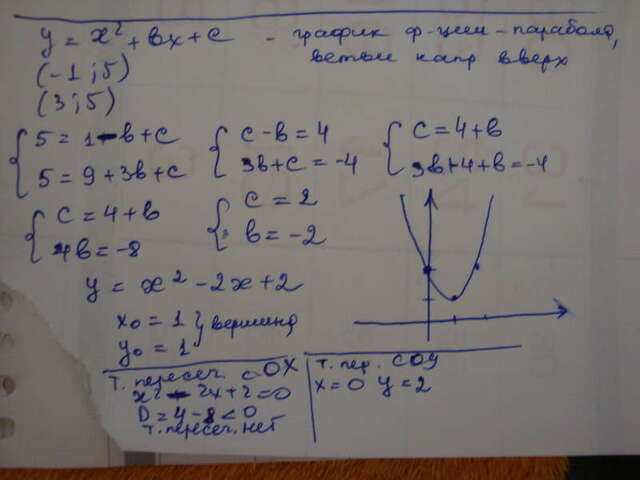 y = x² + bx + c - график ф-ции - парабола,
ветви напр вверх
(-1; 5)
(3; 5)
{ 5 = 1 - b + c
5 = 9 + 3b + c
{ c - b = 4
3b + c = -4
{ c = 4 + b
3b + 4 + b = -4
{ c = 4 + b
4b = -8
{ c = 2
b = -2
y = x² - 2x + 2
x₀ = 1 } вершина
y₀ = 1
т. пересеч. с OX
x² - 2x + 2 = 0
D = 4 - 8 < 0
т. пересеч. нет
т. пер. с OY
x = 0 y = 2